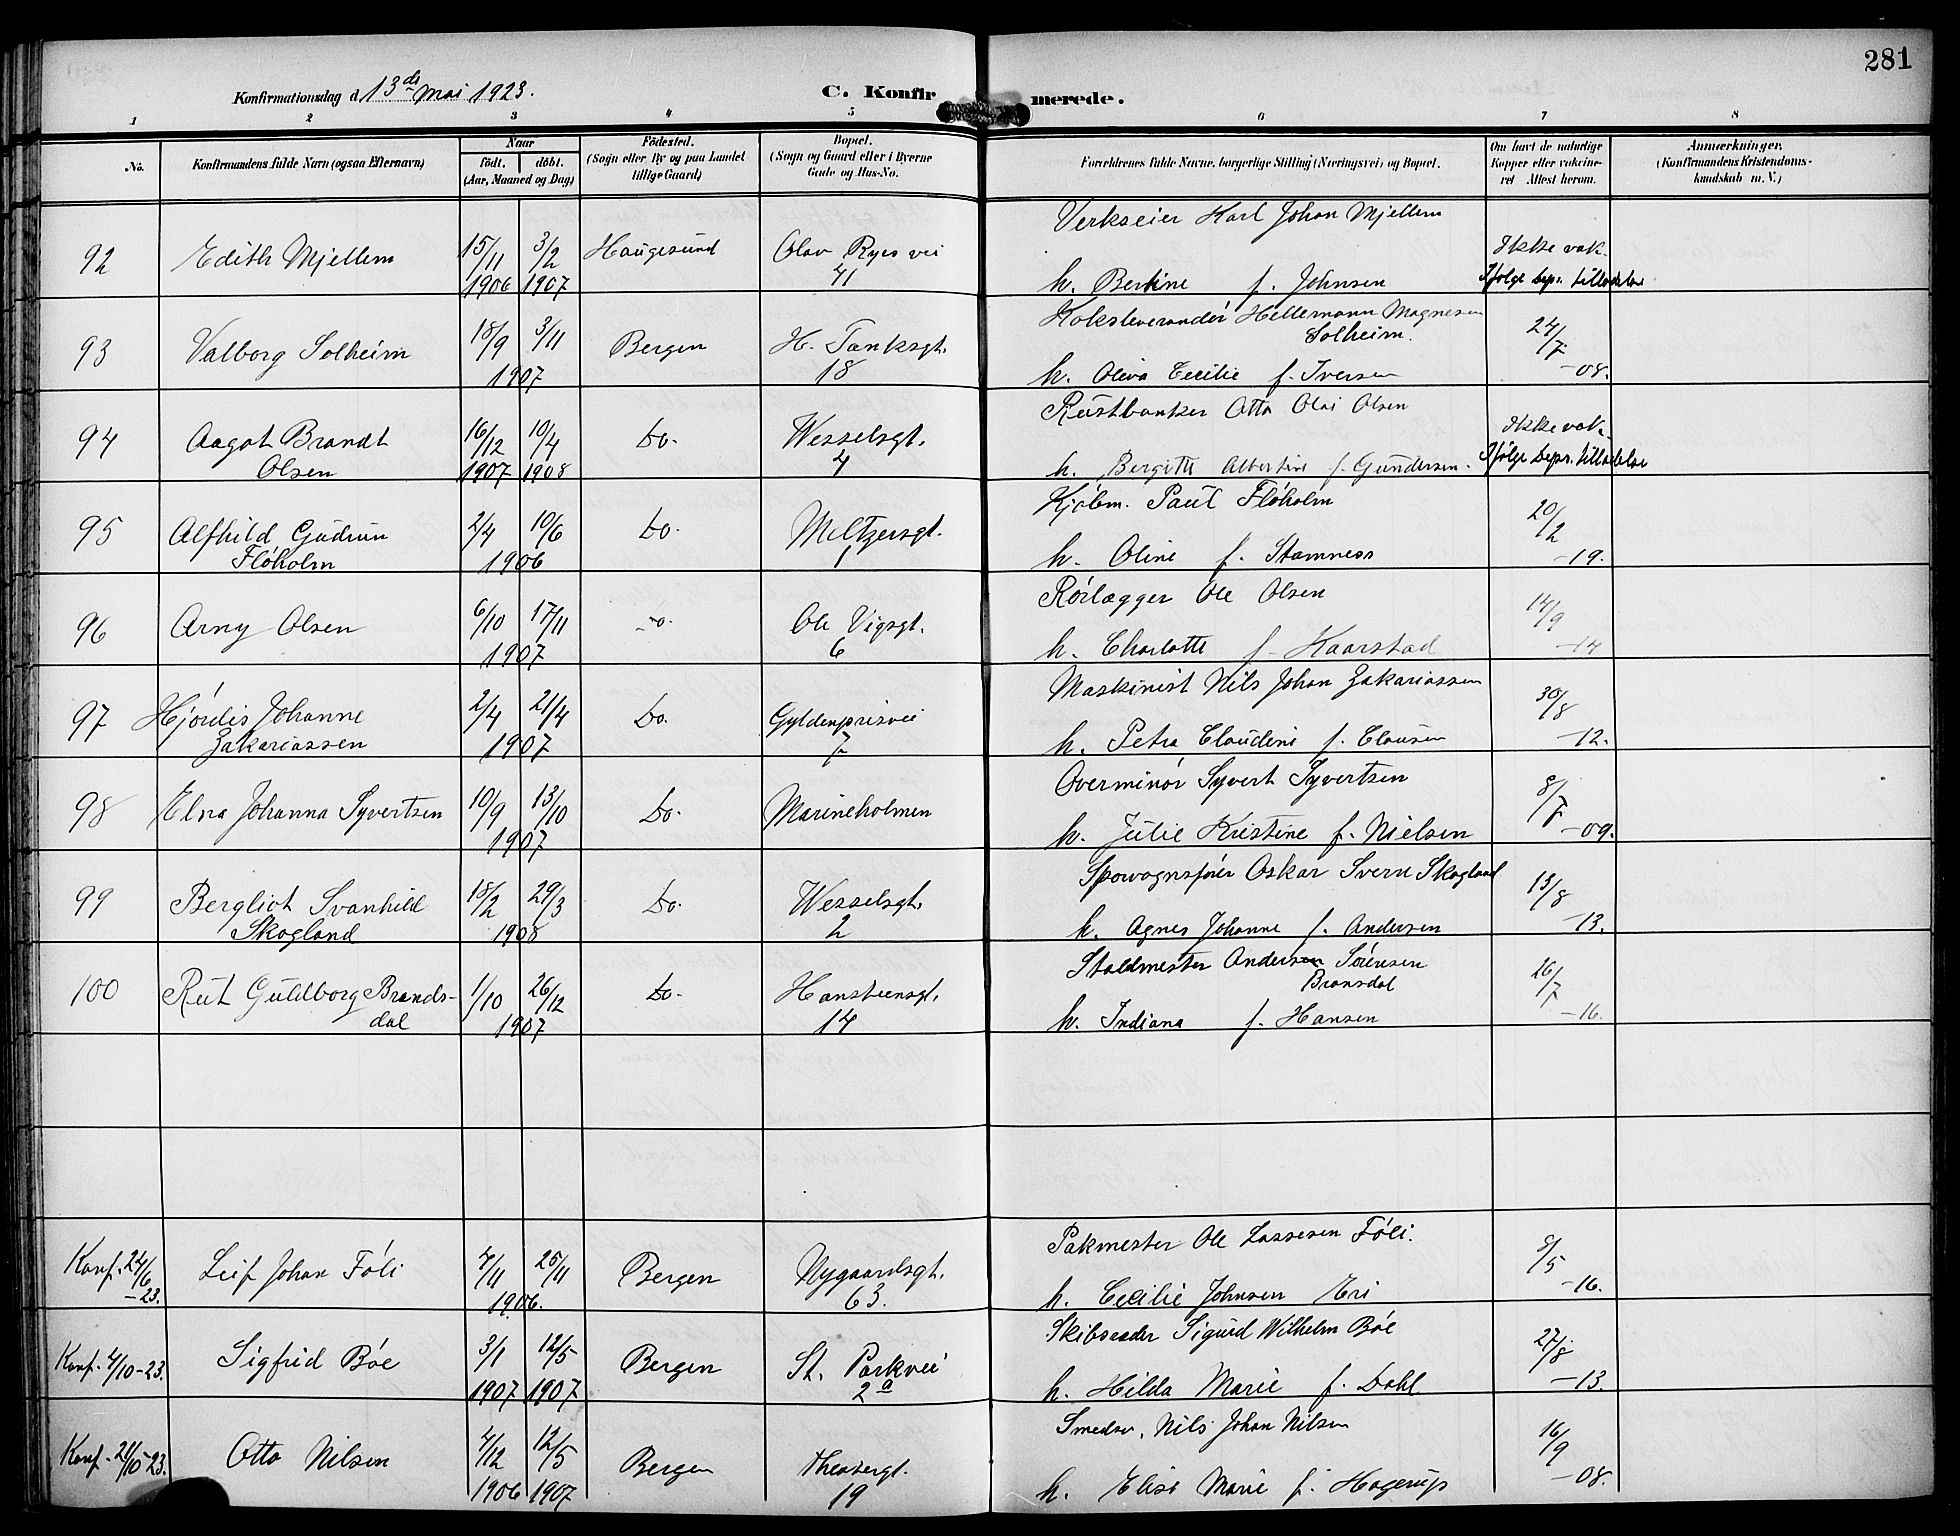 281
Konfirmationsdag d. 13de Mai 1923.
C. Konfirmerede.
1 2 3 4 5 6 7 8
No.
Konfirmandens fulde Navn (ogsaa Efternavn)
Naar
født. døbt.
(Aar, Maaned og Dag)
Fødested.
(Sogn eller By og paa Landet
tillige Gaard)
Bopæl.
(Sogn og Gaard eller i Byerne
Gade og Hus-No.
Forældrenes fulde Navne, borgerlige Stilling (Næringsvei) og Bopæl.
Om havt de naturlige
Kopper eller vakcine-
ret Attest herom.
Anmærkninger.
(Konfirmandens Kristendoms-
kundskab m. V.)
92 Edith Mjellem 15/11 1906 3/2 1907 Haugesund Olav Ryes vei 41
Verkseier Karl Johan Mjellem
h. Bertine f. Johnsen
Ikke vak.
Ifølge bepr. tilladelse
93 Valborg Solheim 18/9 3/11 1907 Bergen H. Tanksgt. 18
Koksleverandør Hellemann Magnesen
Solheim.
h. Oliva Cecilie f. Iversen
24/7 -08.
94 Aagot Brandt
Olsen
16/12 1907 10/4 1908 Do. Wesselsgt. 4
Rustbanker Otto Olai Olsen
h. Bergitte Albertine f. Gundersen.
Ikke vak.
Ifølge bepr. tilladelse
95 Alfhild Gudrun
Fløholm
2/4 10/6 1906 Do. Meltzersgt. 1
Kjøbm. Paul Fløholm
h. Oline f. Stamness
20/2 -19.
96 Arny Olsen 6/10 17/11 1907 Do. Ole Vigsgt. 6
Rørlægger Ole Olsen
h. Charlotte f. Kaarstad
14/9 -14
97 Hjørdis Johanne
Zakariassen
2/4 21/4 1907 Do. Gyldenprisvei 7
Maskinist Nils Johan Zakariassen
h. Petra Claudine f. Clausen
30/8 -12.
98 Elna Johanna Syvertsen 10/9 13/10 1907 Do. Marineholmen
Overminør Syvert Syvertsen
h. Julie Kristine f. Nielsen
8/7 -09.
99 Bergliot Svanhild
Skogland
18/2 29/3 1908 Do. Wesselsgt. 2
Sporvognsfører Oskar Svern Skogland
h. Agnes Johanne f. Andersen
13/8 -13.
100 Rut Guldborg Brands-
dal
1/10 26/12 1907 Do. Hansteensgt. 14
Staldmester Andersen Sørensen
Bransdal
h. Indiana f. Hansen
26/7 -16.
Konf. 24/6 -23. Leif Johan Føli 4/11 25/11 1906. Bergen Nygaardsgt. 63.
Pakmester Ole Lassesen Føli.
h. Cecilie Johnsen Eri
8/5 -16.
Konf. 4/10-23. Sigfrid Bøe 3/1 1907 12/5 1907 Bergen St. Parkvei 2a
Skibsreder Sigurd Wilhelm Bøe
h. Hilda Marie f. Dahl
27/8 -13.
Konf. 21/10-23. Otto Nilsen 4/12 1906 12/5 1907 Bergen Theatergt. 19
Smedsv. Nils Johan Nilsen
h. Elise Marie f. Hagerup
16/9 -08.